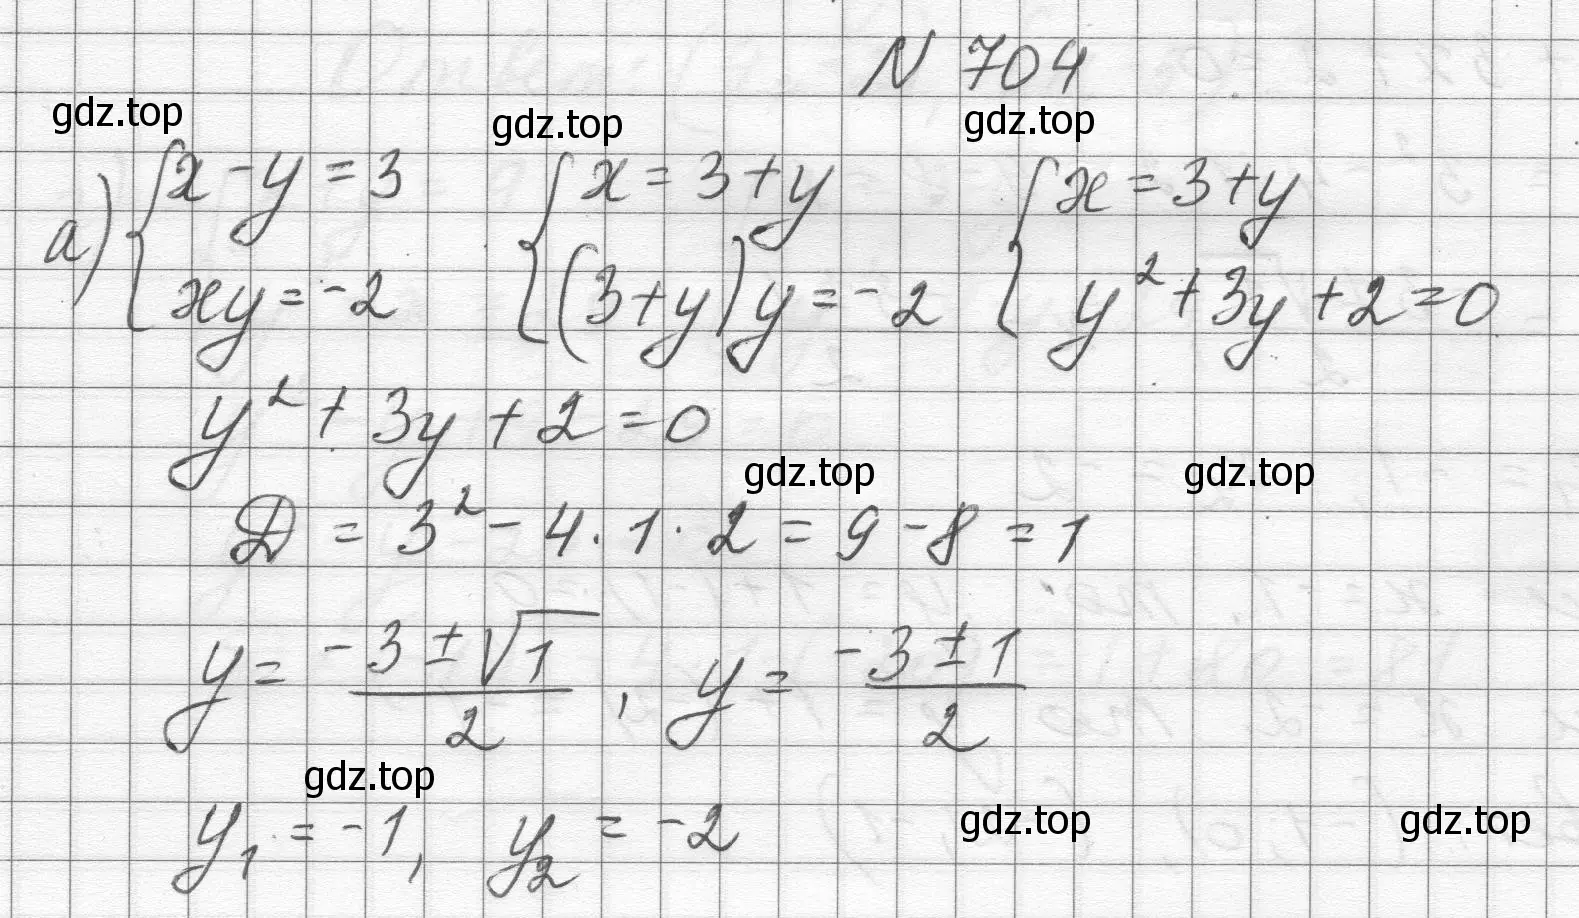 N 704
gdz.top gdz.top gdz.top
а) { x - y = 3 { x = 3 + y { x = 3 + y
xy = -2 (3 + y)y = -2 y² + 3y + 2 = 0
y² + 3y + 2 = 0
gdz.top gdz.top
D = 3² - 4 · 1 · 2 = 9 - 8 = 1
y = (-3 ± √1)/2 , y = (-3 ± 1)/2
gdz.top
y₁ = -1, y₂ = -2
gdz.top gdz.top